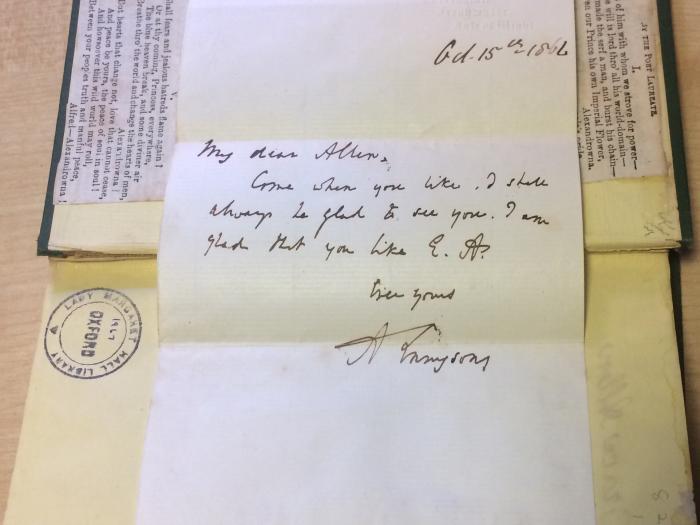 Oct. 15th 1864
My dear Allen,
Come when you like. I shall
always be glad to see you. I am
glad that you like E. A.
Ever yours
A Tennyson
V.
shall fears and jealous hatreds flame again?
Or at thy coming, Princess, everywhere,
The blue heaven break, and some diviner air
Breathe thro' the world and change the hearts of men,
Alexandrowna?
But hearts that change not, love that cannot cease,
And peace be yours, the peace of soul in soul!
And howsoever this wild world may roll,
Between your peoples truth and manful peace,
Alfred—Alexandrowna!
BY THE POET LAUREATE.
I.
of him with whom we strove for power—
will is lord thro' all his world-domain—
made the serf a man, and burst his chain—
en our Prince his own Imperial Flower,
Alexandrowna.
LADY MARGARET HALL LIBRARY
1947
OXFORD